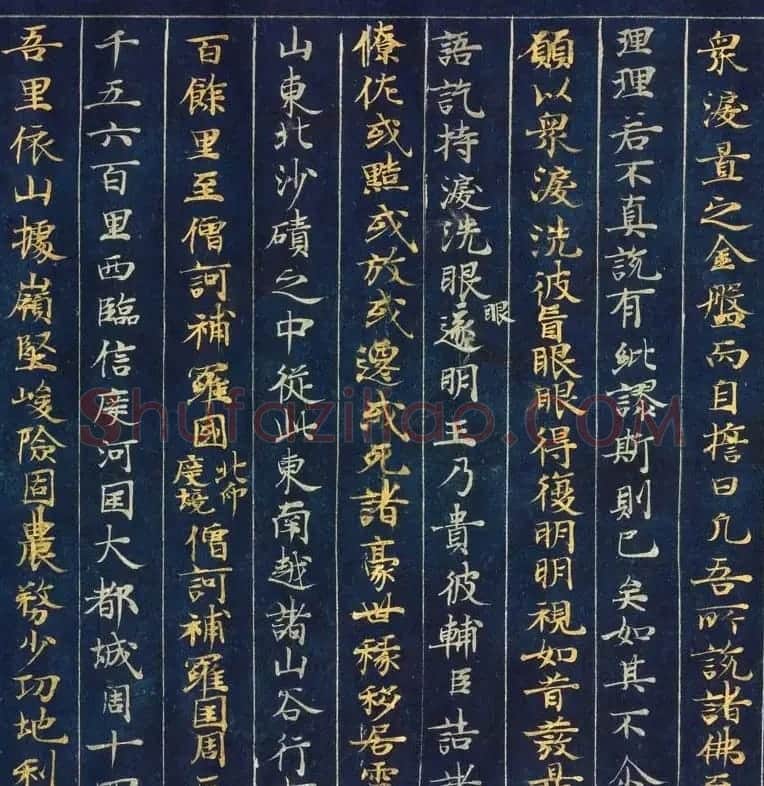 衆淚置之金盤而自擔曰凢吾所說諸佛至
理理若不真說有紕謬斯則已矣如其不尒
願以衆淚洗彼盲眼眼得復明明視如昔發是
語訖持淚洗眼遂眼明王乃責彼輔臣詰諸
僚佐或黜或放或遷或死諸豪世祿移居雪
山東北沙磧之中從此東南越諸山谷行七
百餘里至僧訶補羅國北印度境僧訶補羅国周三
千五六百里西臨信度河国大都城周十四
吾里依山據嶺堅峻險固農務少功地利
Shufaziliao.COM